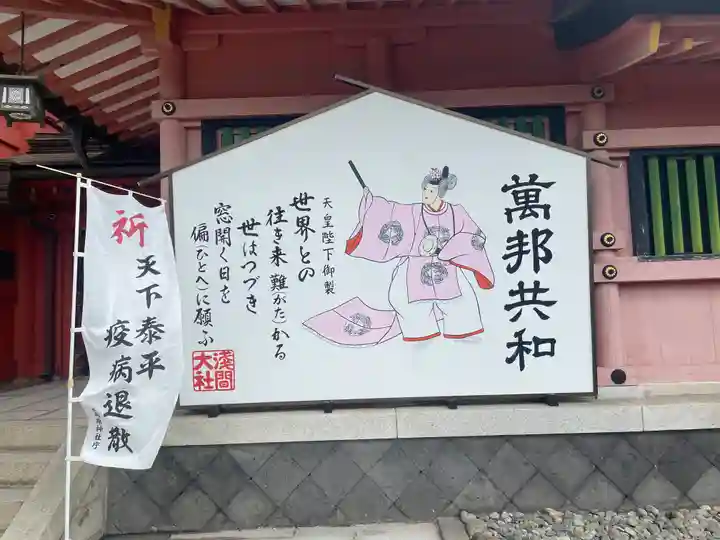 萬邦共和
天皇陛下御製
世界との
往き来難(がた)かる
世はつづき
窓開く日を
偏(ひとへ)に願ふ
浅間
大社
祈
天下泰平
疫病退散
神社庁